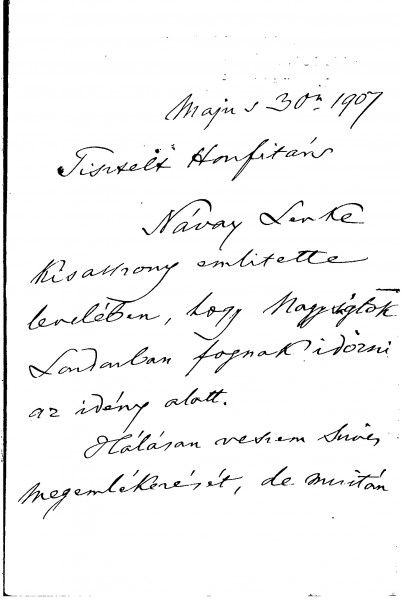 Majus 30án 1907
Tisztelt Honfitárs
Návay Lenke
Kisasszony emlitette
levelében, hogy Nagyságtok
Londonban fognak időzni
az idény alatt.
Hálásan veszem szives
megemlékezését, de miután